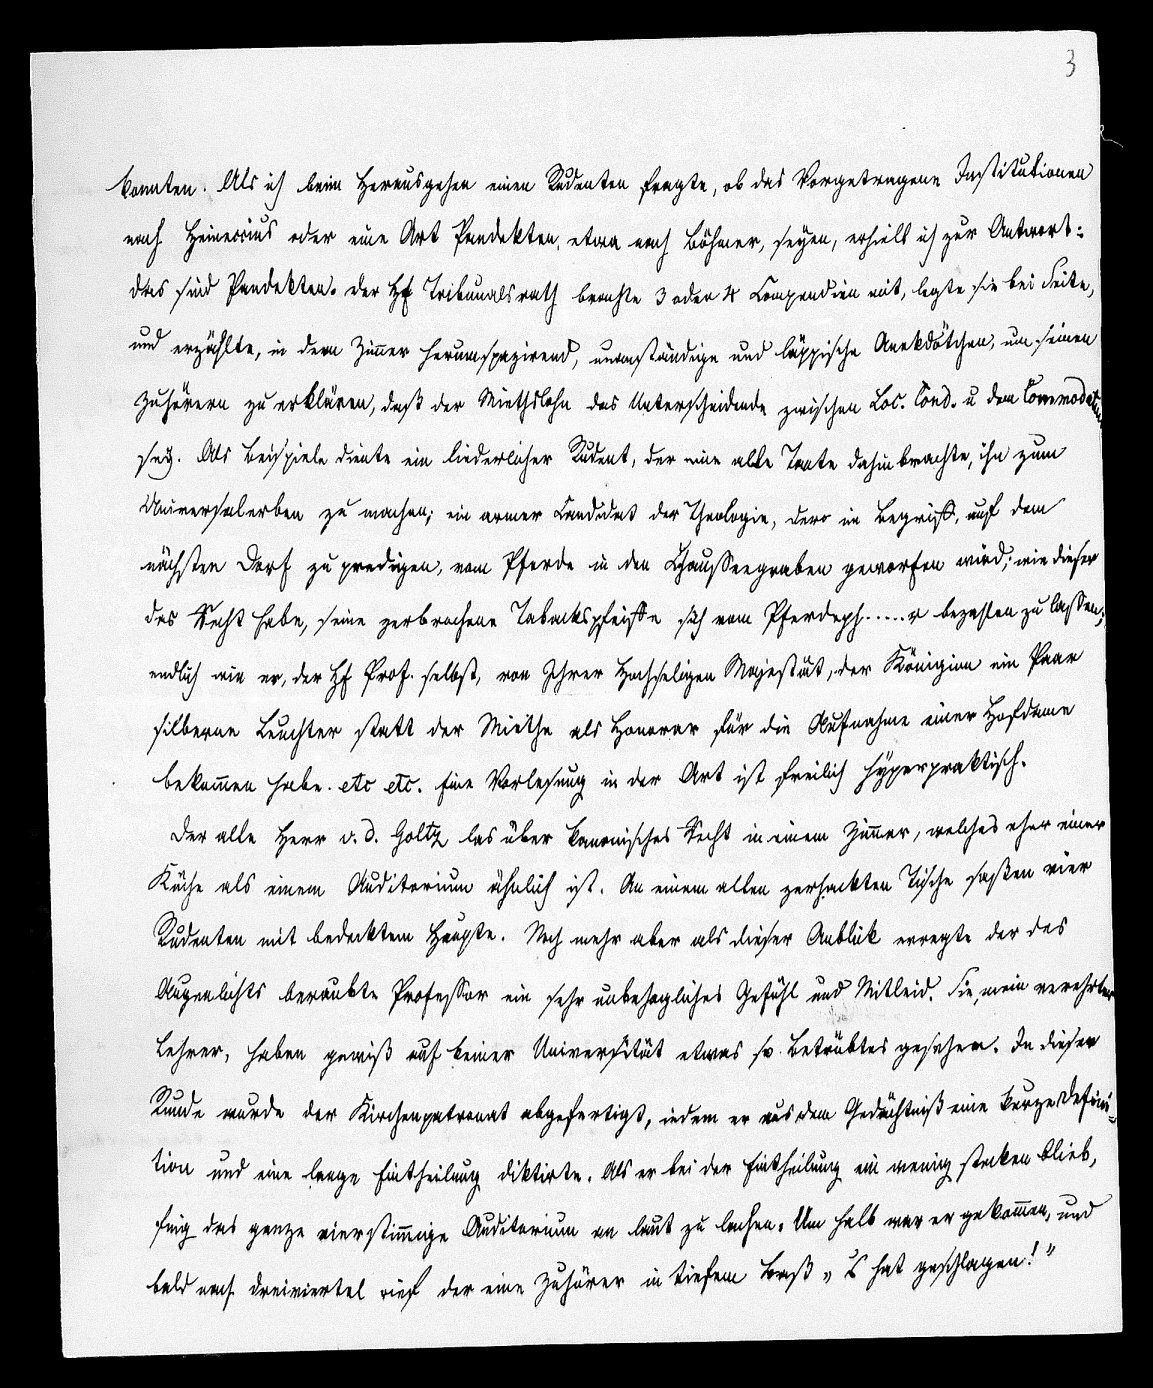 3
konnten. Als ich beim Herausgehen einen Studenten fragte, ob das Vorgetragene Institutionen
nach Heineccius oder eine Art Pandekten, etwa nach Böhmer, seyen, erhielt ich zur Antwort:
das sind Pandekten. Der Hf Tribunalsrath brachte 3 oder 4 Compendien mit, legte sie bei Seite,
und erzählte, in dem Zimmer herumspazirend, unanständige und läppische Anekdötchen, um seinen
Zuhörern zu erklären, daß der Miethslohn das Unterscheidende zwischen Loc. Cond. u dem Commodatum
sey. Als Beispiele diente ein liederlicher Student, der eine alte Tante dahin brachte, ihn zum
Universalerben zu machen; ein armer Candidat der Theologie, der im Begriff, auf dem
nächsten Dorf zu predigen, vom Pferde in den Chausseegraben geworfen wird; wie dieser
das Recht habe, seine zerbrochene Tabackspfeiffe sich vom Pferdeph......r bezahlen zu lassen;
endlich wie er, der Hf Prof. selbst, von Ihrer Hochseligen Majestät, der Königinn ein Paar
silberne Leuchter statt der Miethe als Honorar für die Aufnahme einer Hofdame
bekommen habe. etc etc. Eine Vorlesung in der Art ist freilich hyperpraktisch.
Der alte Herr v. d. Goltz las über kanonisches Recht in einem Zimmer, welches eher einer
Küche als einem Auditorium ähnlich ist. An einem alten zerhackten Tische saßen vier
Studenten mit bedecktem Haupte. Noch mehr aber als dieser Anblick erregte der des
Augenlichts beraubte Professor ein sehr unbehagliches Gefühl und Mitleid. Sie, mein verehrter
Lehrer, haben gewiß auf keiner Universität etwas so Betrübtes gesehen. In dieser
Stunde wurde der Kirchenpatronat abgefertigt, indem er aus dem Gedächtniß eine kurze Defini-
tion und eine lange Eintheilung diktirte. Als er bei der Eintheilung ein wenig stecken blieb,
fing das ganze vierstimmige Auditorium an laut zu lachen. Um halb war er gekommen, und
bald nach dreiviertel rief der eine Zuhörer in tiefem Baß „Es hat geschlagen!"